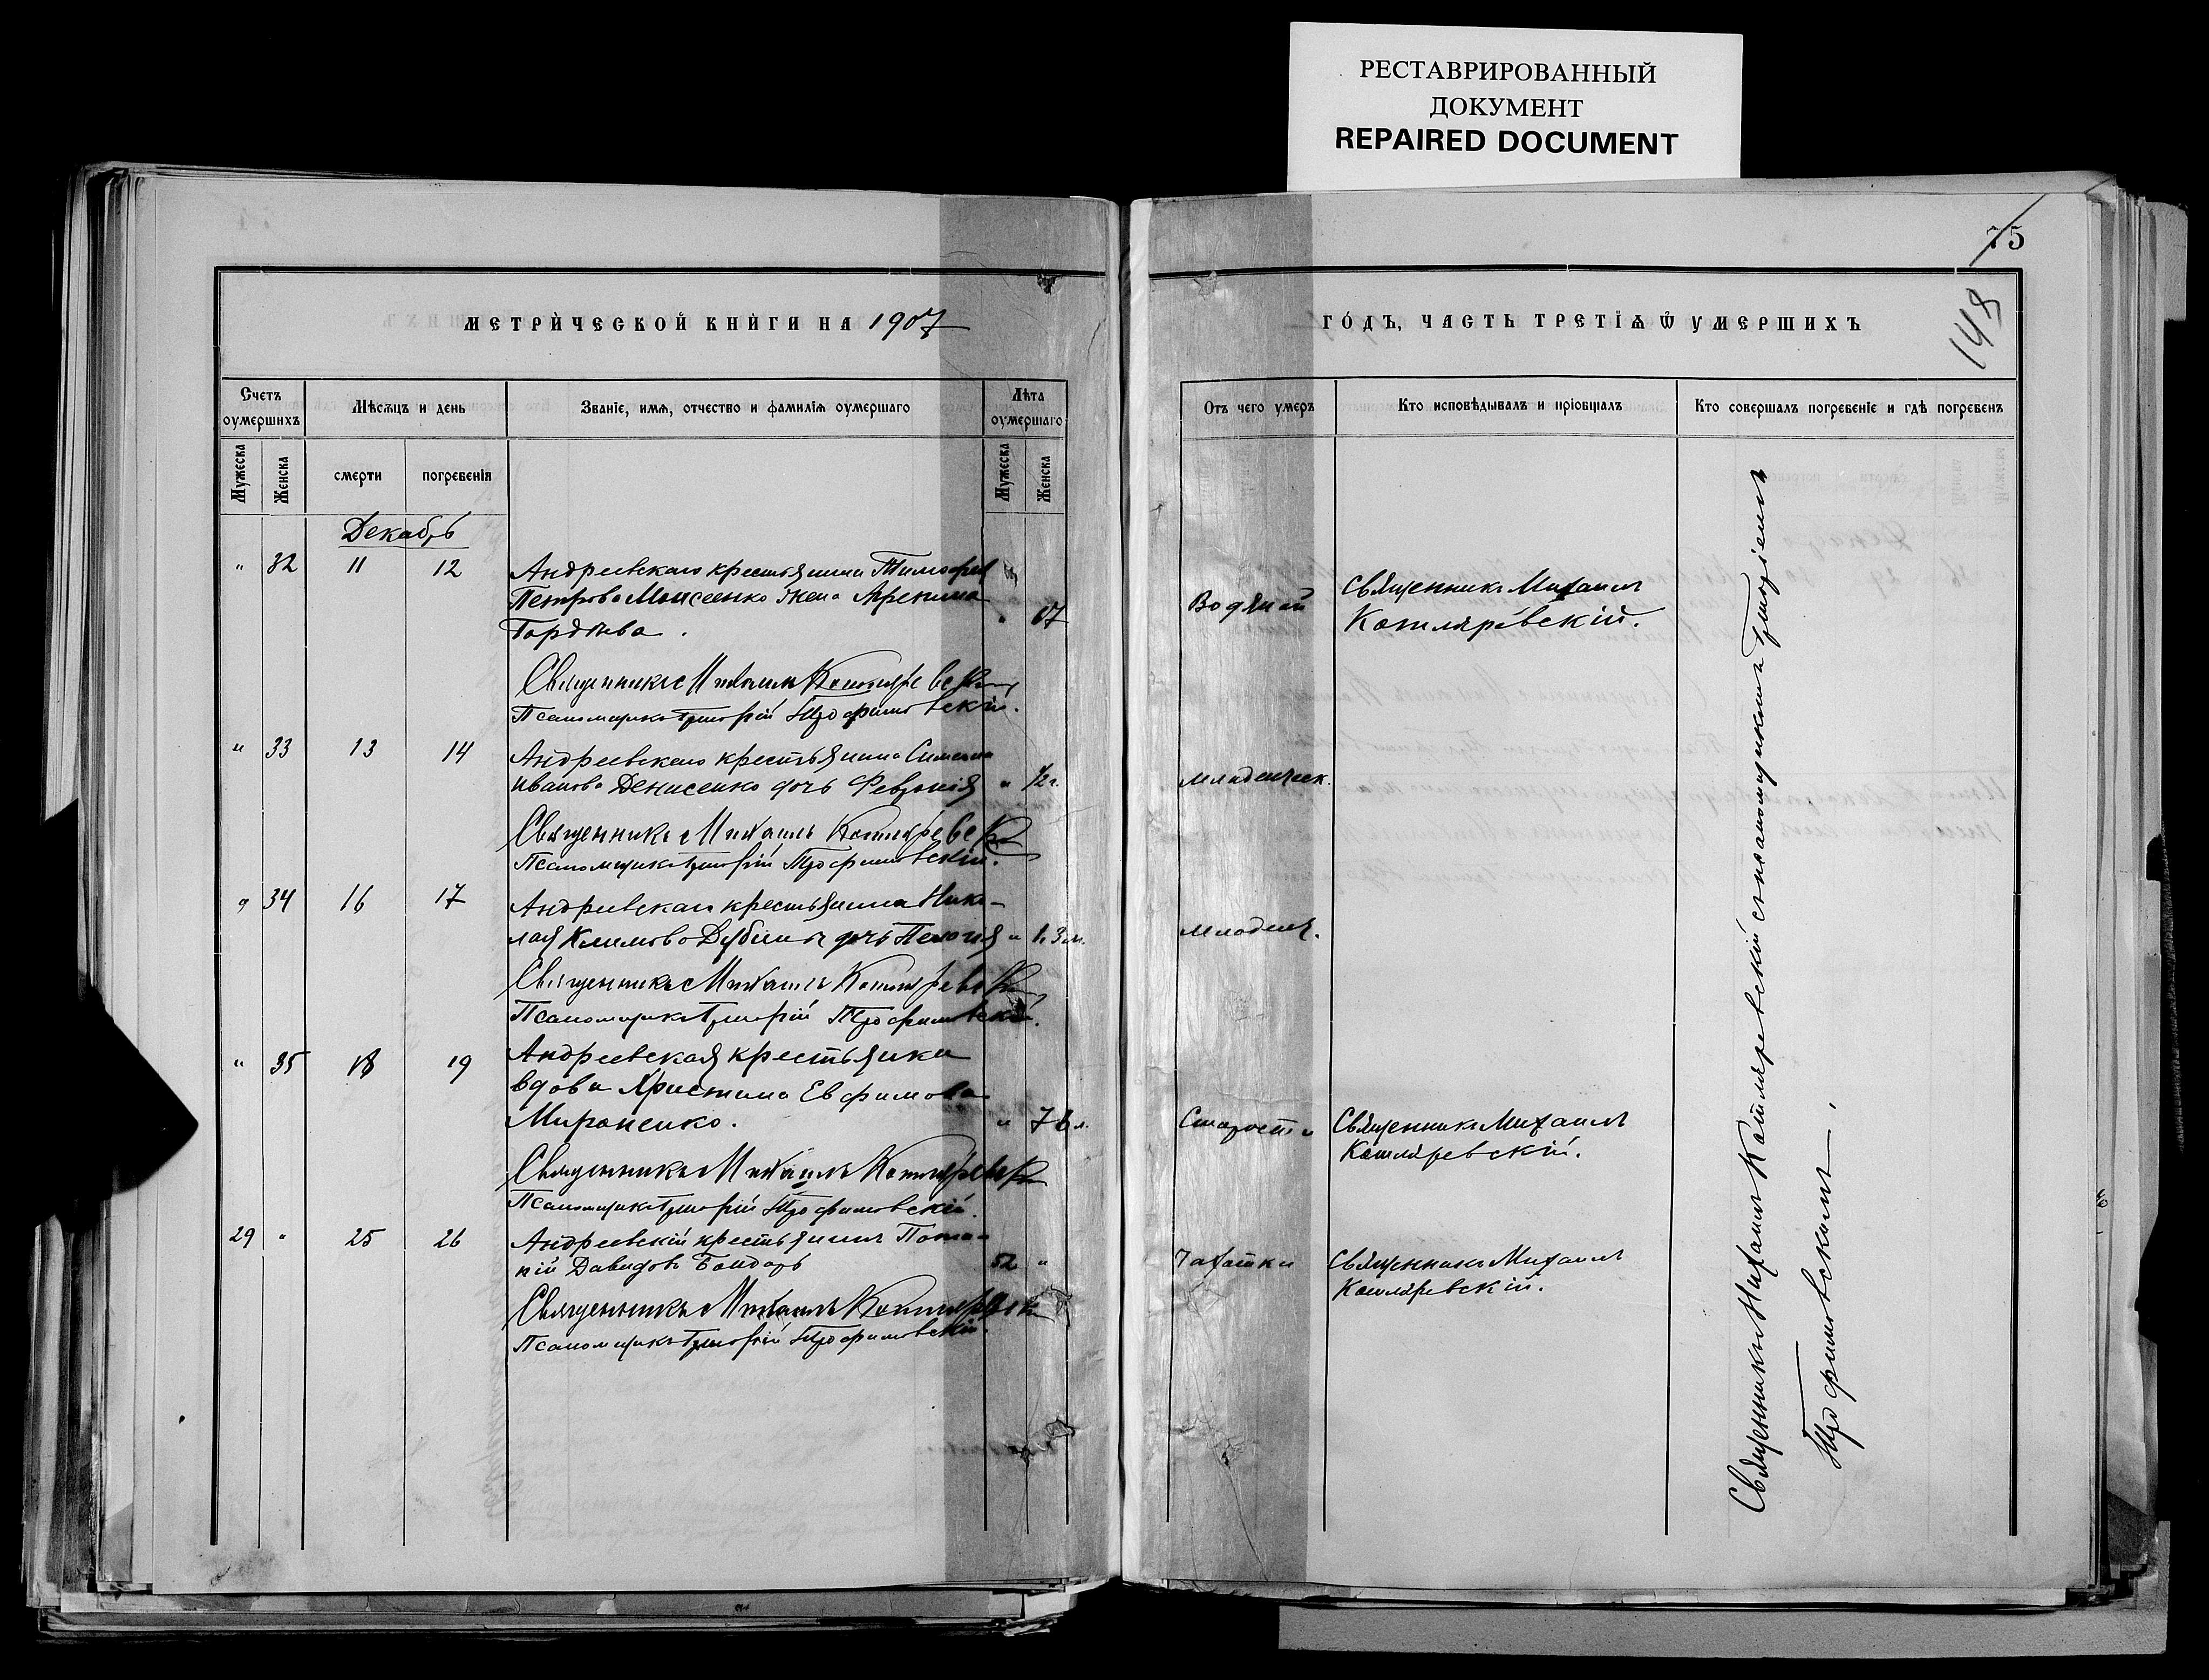 РЕСТАВРИРОВАННЫЙ
ДОКУМЕНТ
REPAIRED DOCUMENT
75
148
МЕТРИ́ЧЕСКОЙ КНИ́ГИ НА 1907
ГО́ДЪ, ЧАСТЬ ТРЕТІѦ Ѿ УМЕРШИХЪ
Счетъ оумершихъ
Мѣсѧцъ и день
Званіе, имѧ, отчество и фамиліѧ оумершаго
Лѣта оумершаго
Отъ чего умеръ
Кто исповѣдывалъ и пріобщалъ
Кто совершалъ погребеніе и гдѣ погребенъ
Мужеска
Женска
смерти
погребенія
Мужеска
Женска
Декабрь
" 32 11 12 Андреевскаго крестьянина Тимофея
Петрова Моисеенко жена
Гордѣева.
Водяной
Священникъ Михаилъ
Котляревскій.
Священникъ Михаилъ Котляревскій
Псаломщикъ Григорій Трофимовскій.
" 33 13 14 Андреевскаго крестьянина Симеона
Иванова Денисенко дочь Февронія " 1/2 г.
младенческ.
Священникъ Михаилъ Котляревскій
Псаломщикъ Григорій Трофимовскій.
" 34 16 17 Андреевскаго крестьянина Нико-
лая Климова дочь Пелагія " 1. 3 м.
младенч.
Священникъ Михаилъ Котляревскій
Псаломщикъ Григорій Трофимовскій.
" 35 18 19 Андреевская крестьянка
вдова Христина Евфимова
Мироненко. " 76 л.
Старости
Священникъ Михаилъ
Котляревскій.
Священникъ Михаилъ Котляревскій
Псаломщикъ Григорій Трофимовскій.
29 " 25 26 Андреевскій крестьянинъ
Давидовъ Бондарь 52 "
Чахотки
Священникъ Михаилъ
Котляревскій.
Священникъ Михаилъ Котляревскій
Псаломщикъ Григорій Трофимовскій.
Священникъ Михаилъ Котляревскій съ псаломщикомъ Григоріемъ
Трофимовскимъ.